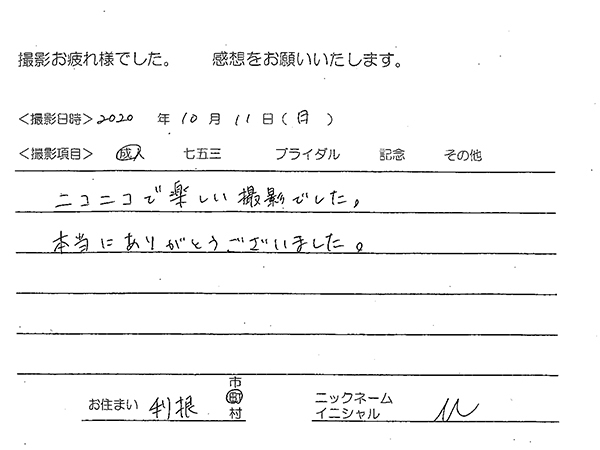 撮影お疲れ様でした。 感想をお願いいたします。
<撮影日時>2020 年 10 月 11 日 ( 日 )
<撮影項目> 成人 七五三 ブライダル 記念 その他
ニコニコで楽しい撮影でした。
本当にありがとうございました。
お住まい 利根 市 町 村
ニックネーム
イニシャル